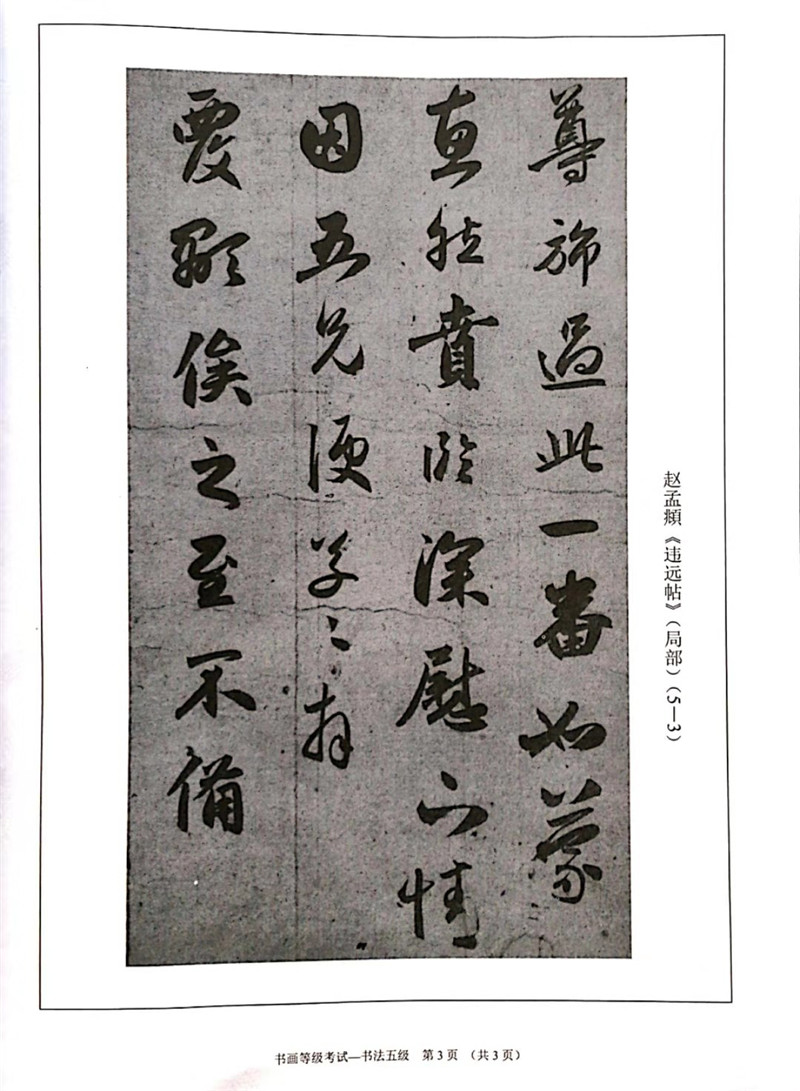 尊旆過此一番如蒙
惠然賁臨深慰下情
因五兄便草々拜
覆顒俟之至不備
赵孟頫《违远帖》（局部）（5—3）
书画等级考试—书法五级　第3页　（共3页）